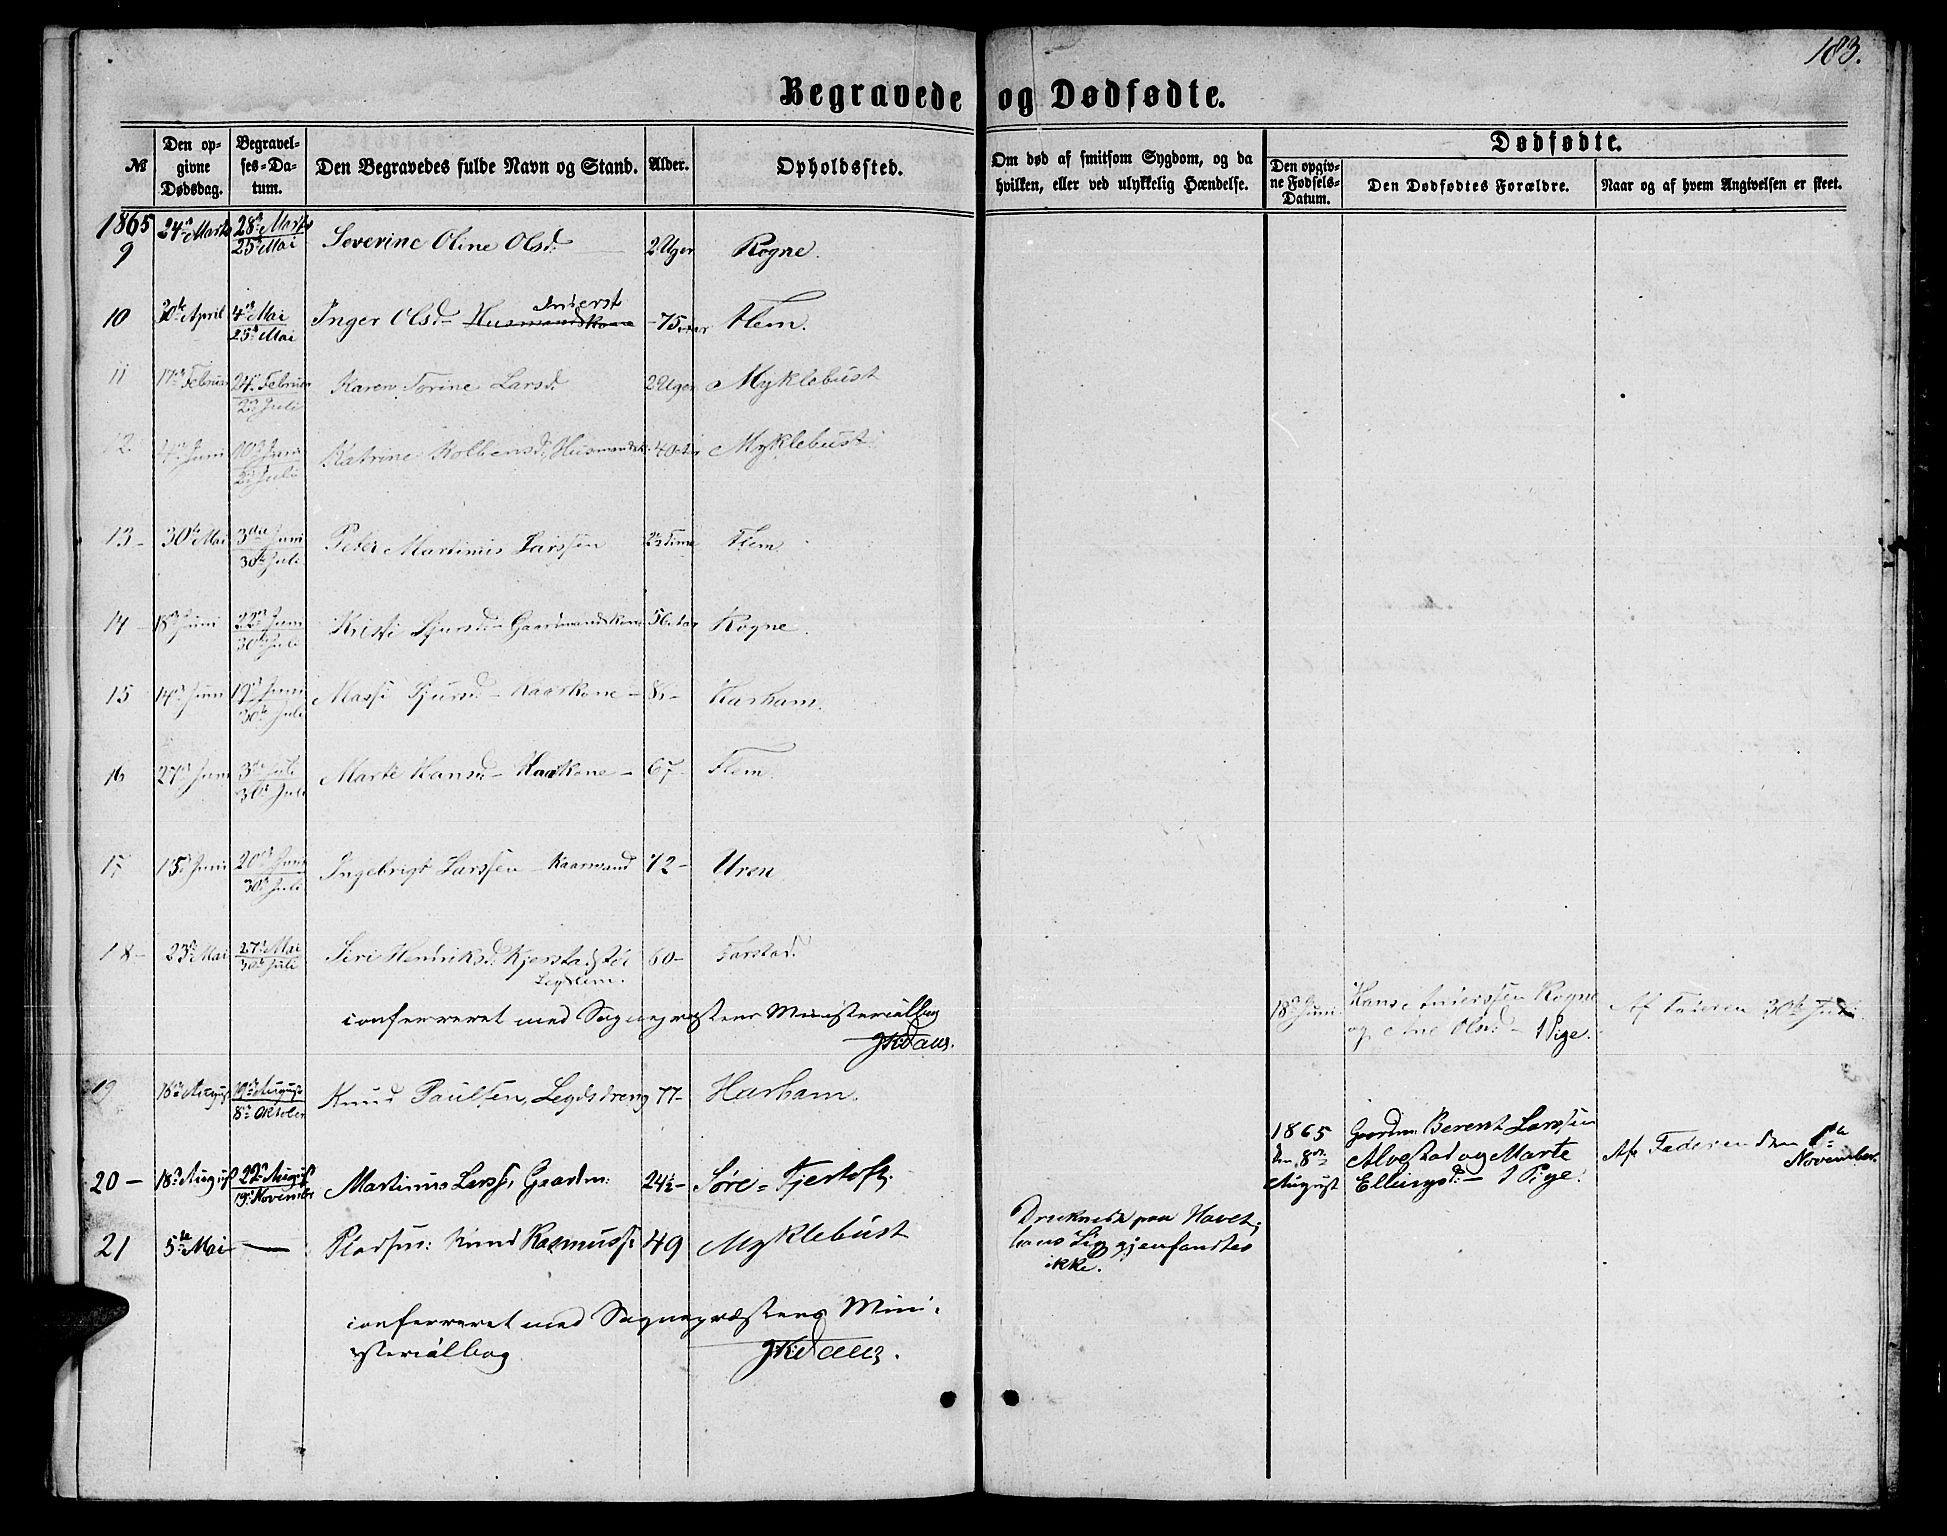 183.
Begravede og Dødfødte.
№
Den opgivne Dødsdag.
Begravelses-Datum.
Den Begravedes fulde Navn og Stand.
Alder.
Opholdssted.
Om død af smitsom Sygdom, og da hvilken, eller ved ulykkelig Hændelse.
Dødfødte.
Den opgivne Fødsels-Datum.
Den Dødfødtes Forældre.
Naar og af hvem Angivelsen er skeet.
1865
9 24de Marts 28de Marts 25de Mai Severine Oline Olsd: 2 Uger Rogne.
10 30te April 4de Mai 25de Mai Inger Olsd- Husmandskone Inderst -75 aar Flem.
11 17de Februar 24de Februar Juli Karen Larsd 2 Uger Myklebust
12 4de Juni 10de Juni Juli Katrine Kolbensd, 40 aar Myklebust
13- 30te Mai 3die Juni 30te Juli Peder Martinus Larssen Flem
14- 18de Juni 22de Juni 30te Juli Kristi Sjursd- Gaardmandskone 56 aar Rogne.
15 14de Juni 19de Juni 30te Juli Massi Sjursd- Kaarkone- Harham.
16 27de Juni 3die Juli 30te Juli Marte Hansd- Kaarkone- 67- Flem.
17 15de Juni 20de Juni 30te Juli Ingebrigt Larssen- Kaarmand 72- Uren
18- 23de Mai 27de Mai 30te Juli Siri Henriksd. Legdlem. 60- Farstad.
confereret med Sognepræstens Ministerialbog
18de Juni Hans Anderssen Rogne og Ane Olsd- 1 Pige.
Af Faderen 30te Juli
19 16de August 19de August 8de Oktober Knud Paulsen, Legdsdreng 77- Harham.
20- 18de August 22de August 19de November Martinus Larss, Gaardm: 24½- Søre=Fjertoft.
1865 den 8de August Gaardm: Berent Larssen Alvestad og Marte Ellingsd:- 1 Pige.
Af Faderen den November.
21 5te Mai — Pladsm: Knud Rasmuss: 49 Myklebust
Druknede paa Havet;
hans Lig gjenfandtes
ikke.
confereret med Sognepræstens Mini-
sterialbog